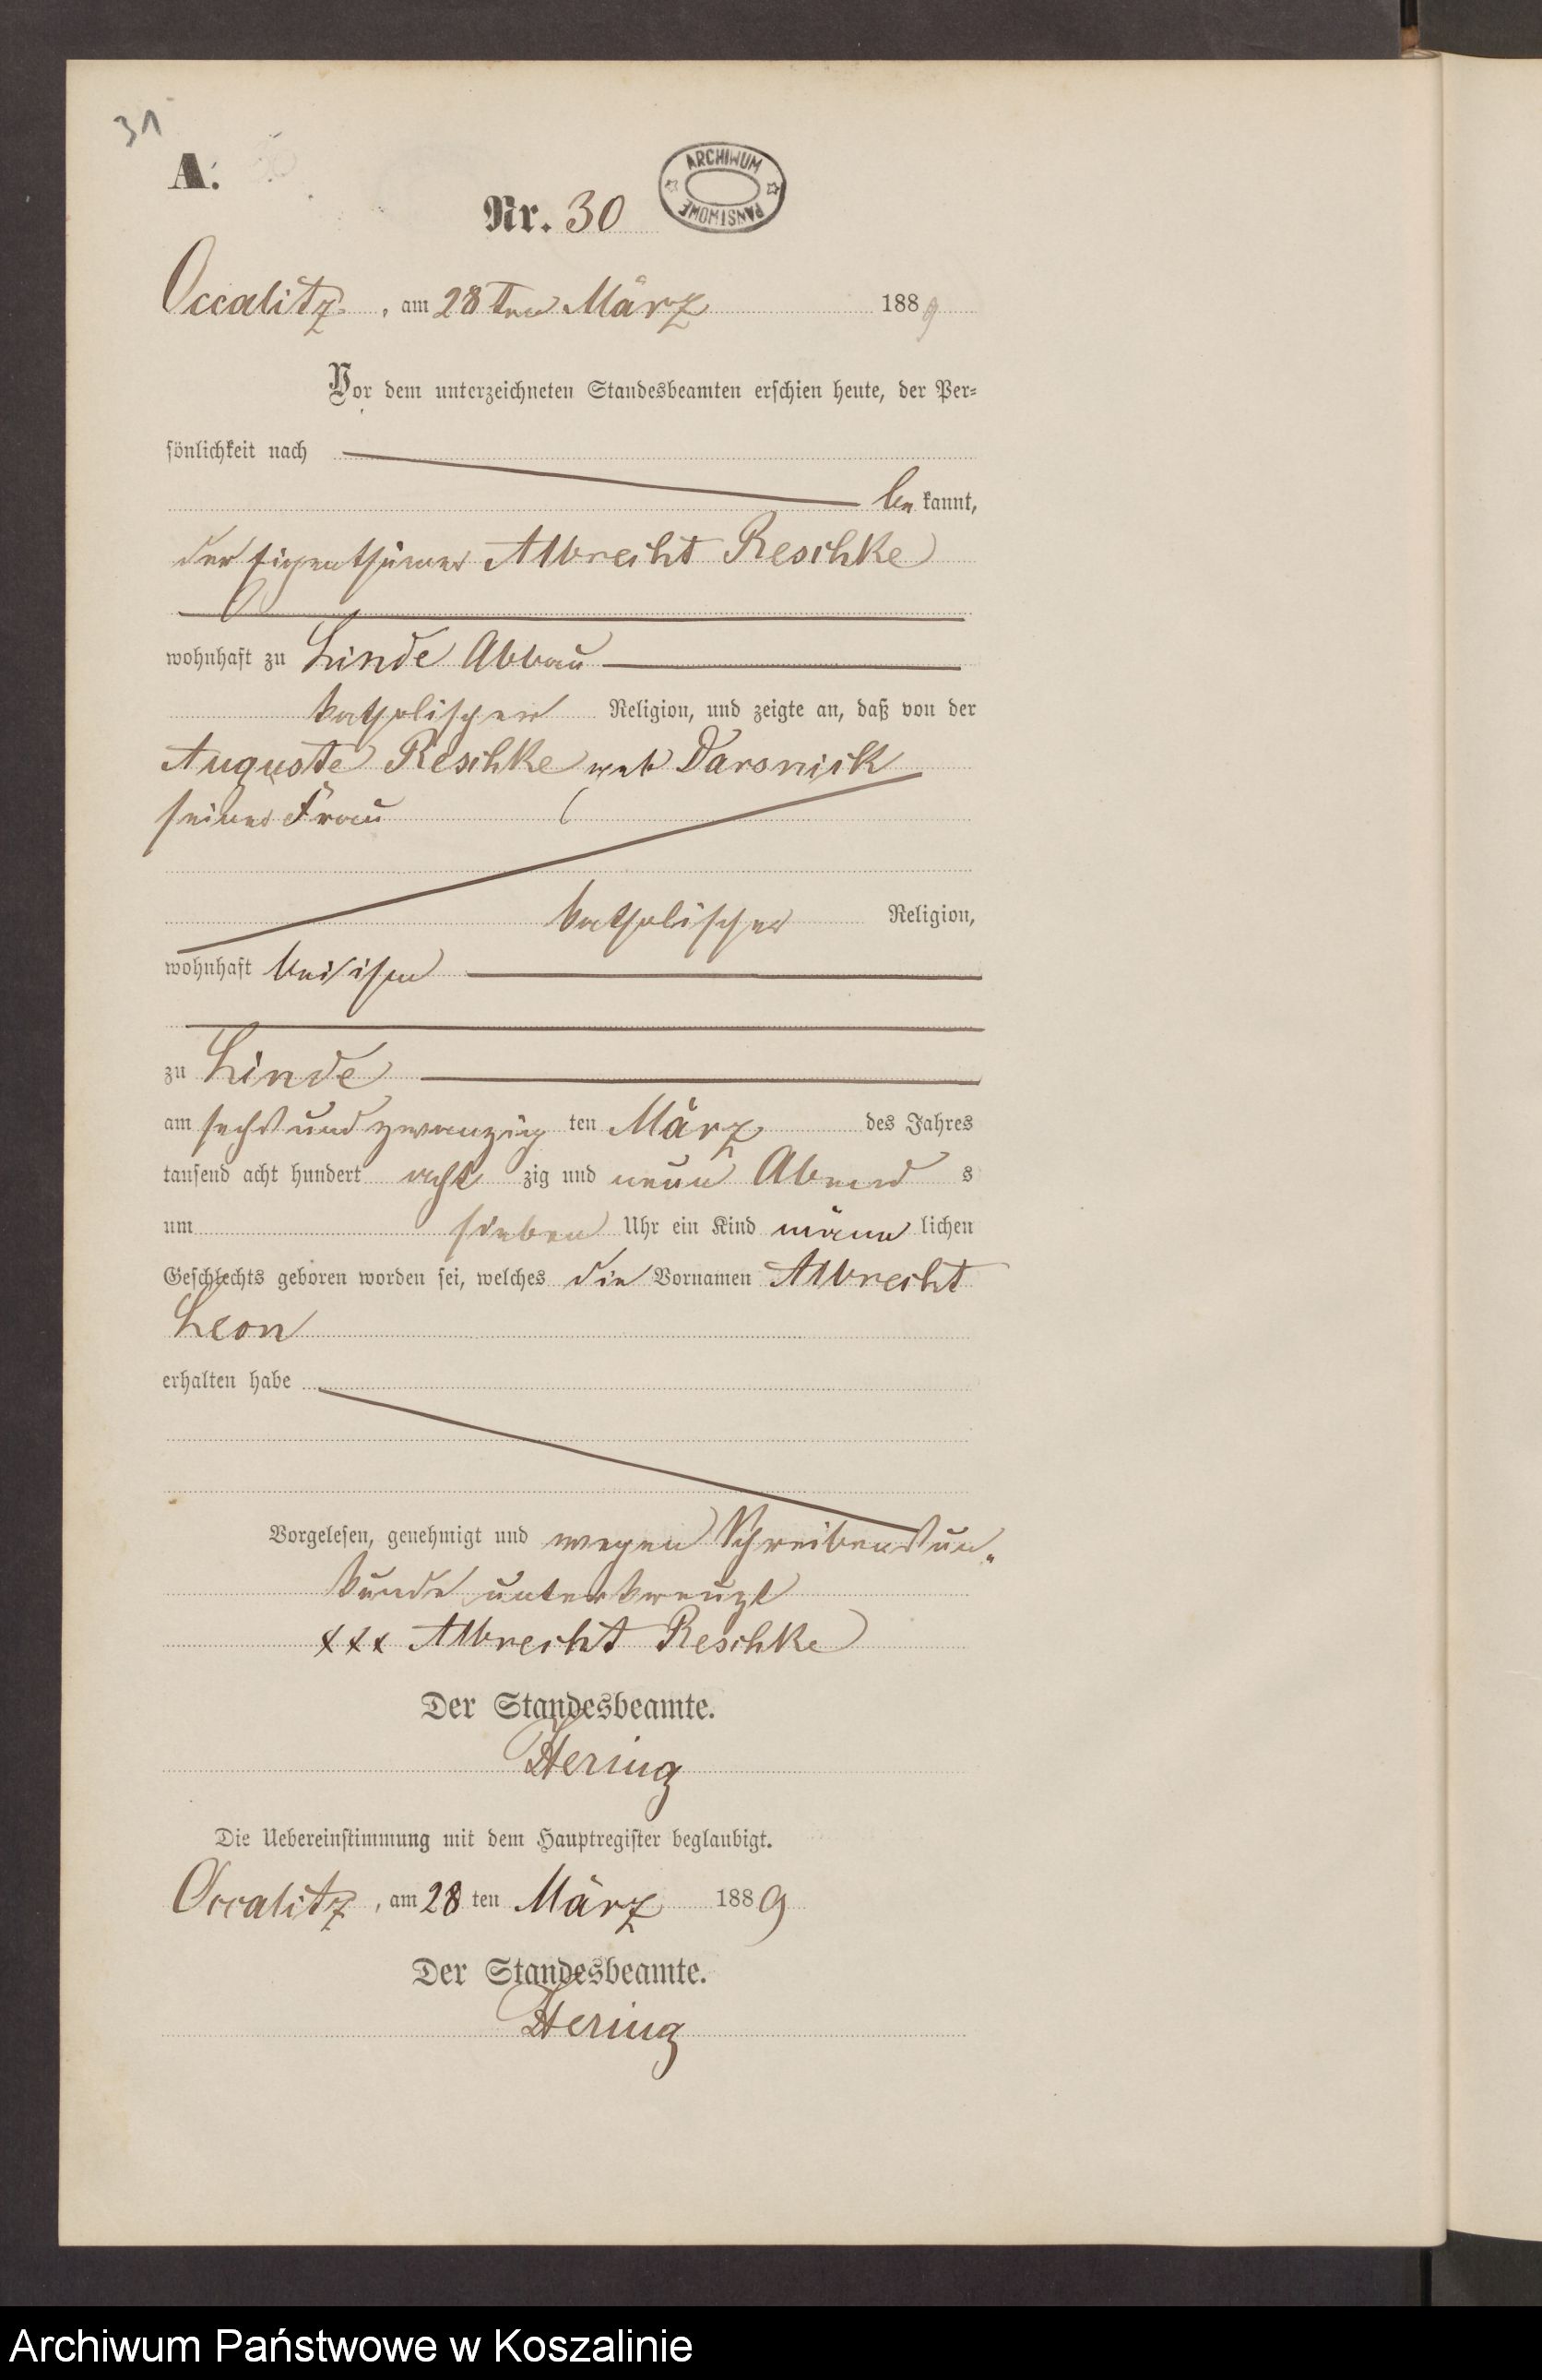 31
A.
ARCHIWUM
PAŃSTWOWE
Nr. 30
Occalitz, am 28ten März 1889
Vor dem unterzeichneten Standesbeamten erschien heute, der Per=
sönlichkeit nach
be kannt,
der Eigenthümer Albrecht Reschke
wohnhaft zu Linde Abbau
katholischer Religion, und zeigte an, daß von der
Auguste Reschke geb Darsnick
seiner Frau
katholischer Religion,
wohnhaft bei ihm
zu Linde
am sechsundzwanzig ten März des Jahres
tausend acht hundert acht zig und neun Abend s
um sieben Uhr ein Kind männ lichen
Geschlechts geboren worden sei, welches die Vornamen Albrecht
Leon
erhalten habe
Vorgelesen, genehmigt und wegen Schreibensun„
kunde unterkreuzt
xxx Albrecht Reschke
Der Standesbeamte.
Hering
Die Uebereinstimmung mit dem Hauptregister beglaubigt.
Occalitz, am 28 ten März 1889
Der Standesbeamte.
Hering
Archiwum Państwowe w Koszalinie